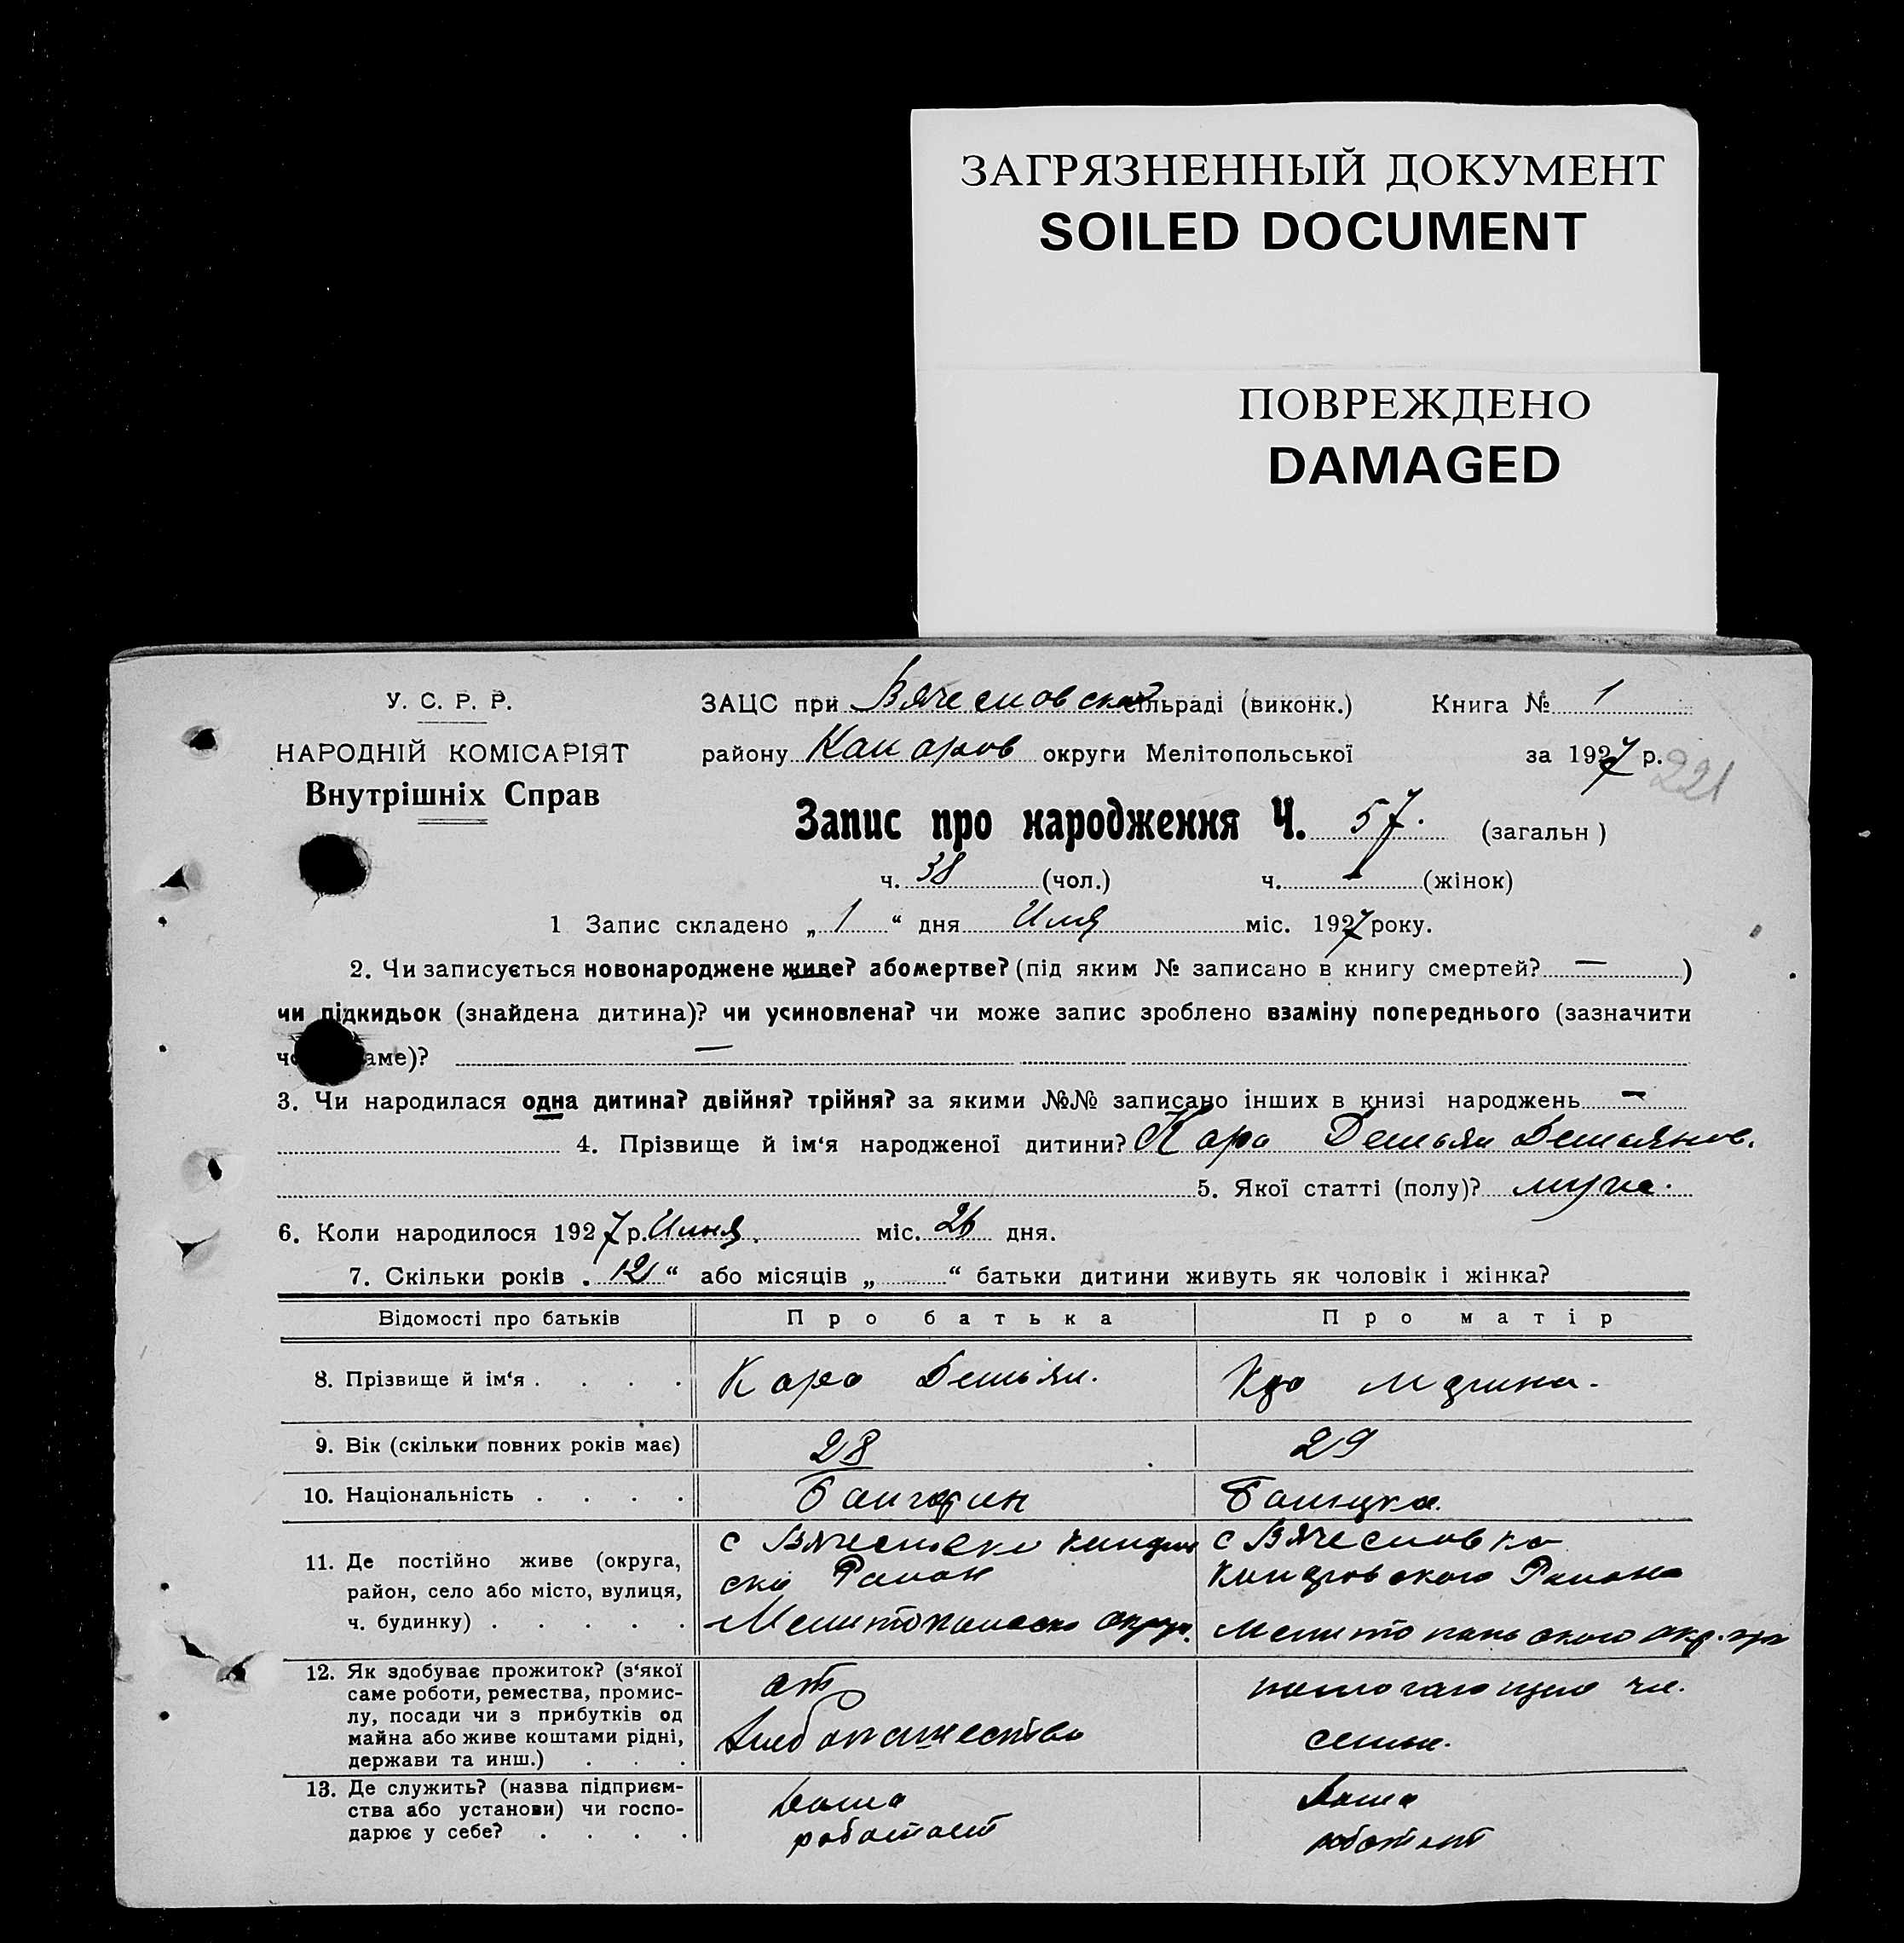 ЗАГРЯЗНЕННЫЙ ДОКУМЕНТ
SOILED DOCUMENT
ПОВРЕЖДЕНО
DAMAGED
У. С. Р. Р.
НАРОДНІЙ КОМІСАРІЯТ
Внутрішніх Справ
ЗАЦС при Вячеславской сільраді (виконк.) Книга № 1
району округи Мелітопольської за 1927 р. 221
Запис про народження Ч. 57. (загальн )
ч. 38 (чол.) ч. (жінок)
1 Запис складено „ 1 “ дня міс. 1927 року.
2. Чи записується новонароджене живе? абомертве? (під яким № записано в книгу смертей? — )
чи підкидьок (знайдена дитина)? чи усиновлена? чи може запис зроблено взаміну попереднього (зазначити
аме)? —
3. Чи народилася одна дитина? двійня? трійня? за якими №№ записано інших в книзі народжень —
4. Прізвище й ім‘я народженої дитини? Кара Демьян Демьянов.
5. Якої статті (полу)? муж.
6. Коли народилося 1927 р. Июня. міс. 26 дня.
7. Скільки років „ 12 “ або місяців „ “ батьки дитини живуть як чоловік і жінка?
Відомості про батьків Про батька Про матір
8. Прізвище й ім‘я . . . . Кара Демьян. Кара
9. Вік (скільки повних років має) 28 29
10. Національність . . . . Болгарин
11. Де постійно живе (округа,
район, село або місто, вулиця,
ч. будинку) . . . . .
с Вячеславка
Район
с Вячеславка
Района
12. Як здобуває прожиток? (з‘якої
саме роботи, ремества, промис-
лу, посади чи з прибутків од
майна або живе коштами рідні,
держави та инш.) . . .
от
Хлебопашества
помогающая чл.
семьи.
13. Де служить? (назва підприєм-
ства або установи) чи госпо-
дарює у себе? . . . .
дома
работает
дома
работает